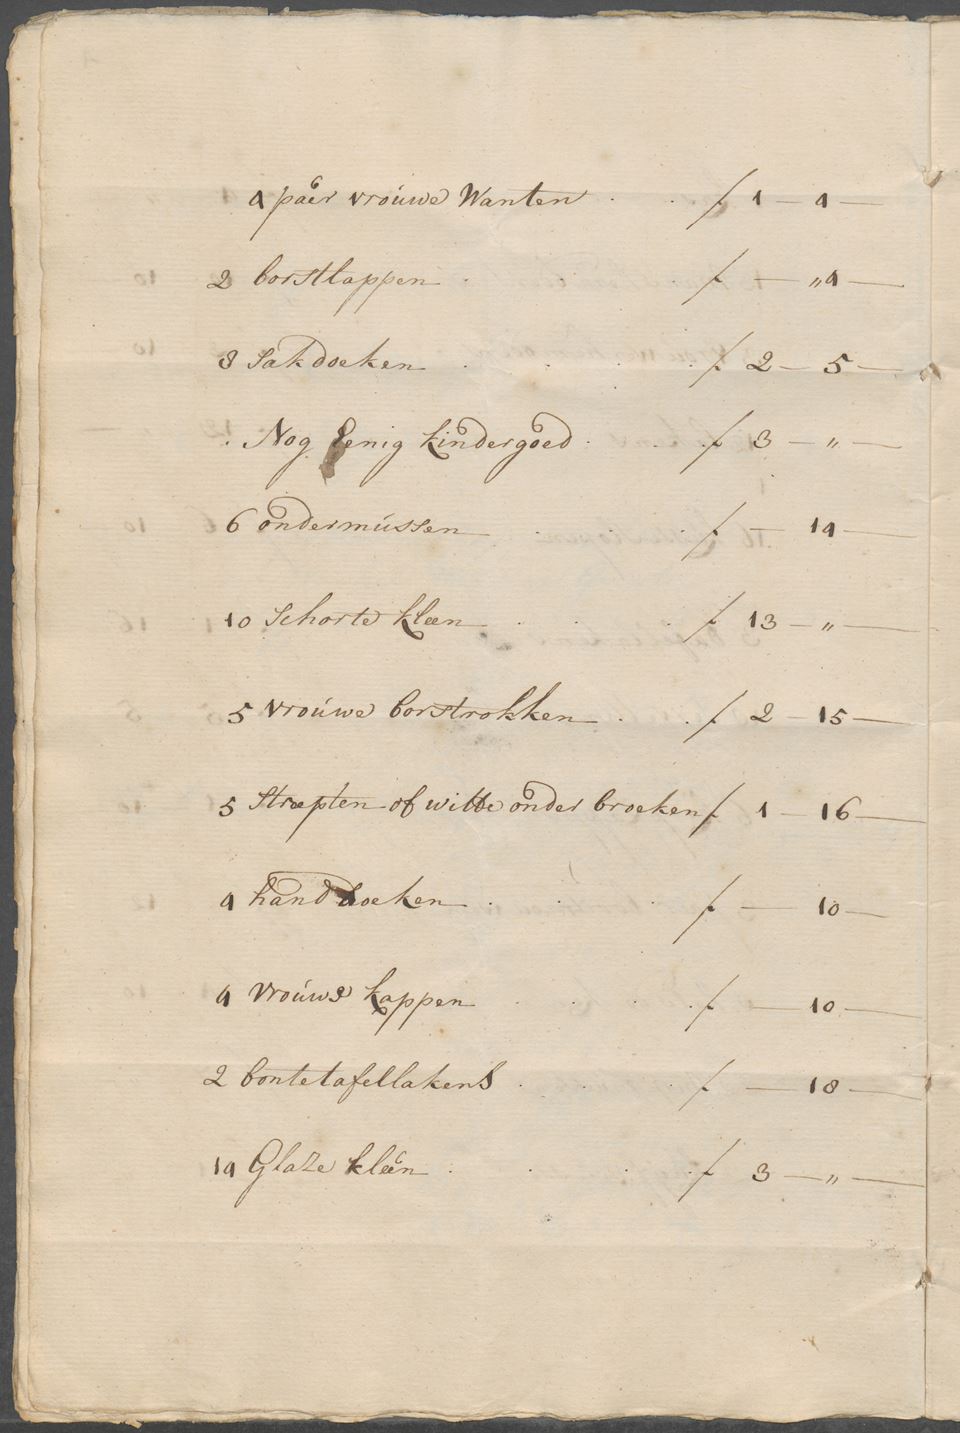 4 paer vrouwe Wanten . . f 1 — 4 —
2 borstlappen . . . f — „ 4 —
8 Sakdoeken . . . f 2 — 5 —
. Nog Eenig kindergoed . . . f 3 — „ —
6 ondermússen . . . f — 14 —
10 Schorte kleen . . . f 13 — „ —
5 vroúwe borstrokken . . f 2 — 15 —
5 Streepten of witte onder broeken f 1 — 16 —
4 handdoeken . . . f — 10 —
4 vroúwe kappen . . . f — 10 —
2 bontetafellakens . . . f — 18 —
14 Glaze kleen . . . f 3 — „ —